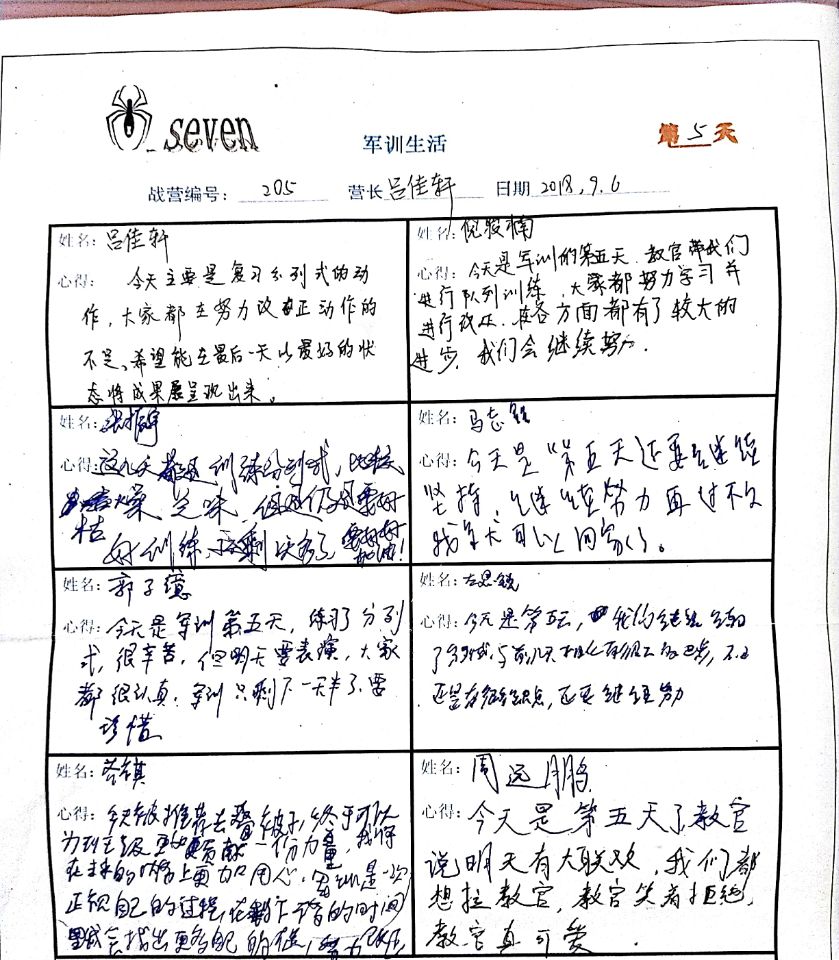 seven
军训生活
第5天
战营编号: 205 营长 吕佳轩 日期 2018.9.6
姓名: 吕佳轩
心得: 今天主要是复习分列式的动
作,大家都在努力改正动作的
不足,希望能在最后一天以最好的状
态将成果展呈现出来。
姓名: 倪
心得: 今天是军训的第五天.教官带我们
进行队列训练,大家都努力学习并
进行改正.在各方面都有了较大的
进步.我们会继续努力.
姓名:
心得: 这几天都是训练分列式,比较
枯燥乏味,但是仍需要好
好训练,
加油!
姓名: 马志
心得: 今天是第五天还要继续
坚持,继续努力再过不久
我们可以回家了。
姓名: 郭子
心得: 今天是军训第五天,练习了分列
式,很辛苦,但明天要表演,大家
都很认真,军训只剩下一天半了,要
珍惜
姓名: 左思锐
心得: 今天是第五天,我们继续
了分列式,与前几天相比有很大的进步,不过
还是有很多缺点,还要继续努力
姓名:
心得: 今天被推荐去叠被子,终于可以
为班级贡献一份力量,我将
在未来的内务上更加用心,军训是一次
正视自己的过程,在剩下的时间
会找出更多自己的
姓名: 周远鹏
心得: 今天是第五天了教官
说明天有大联欢,我们都
想拉教官,教官笑着拒绝,
教官真可爱.